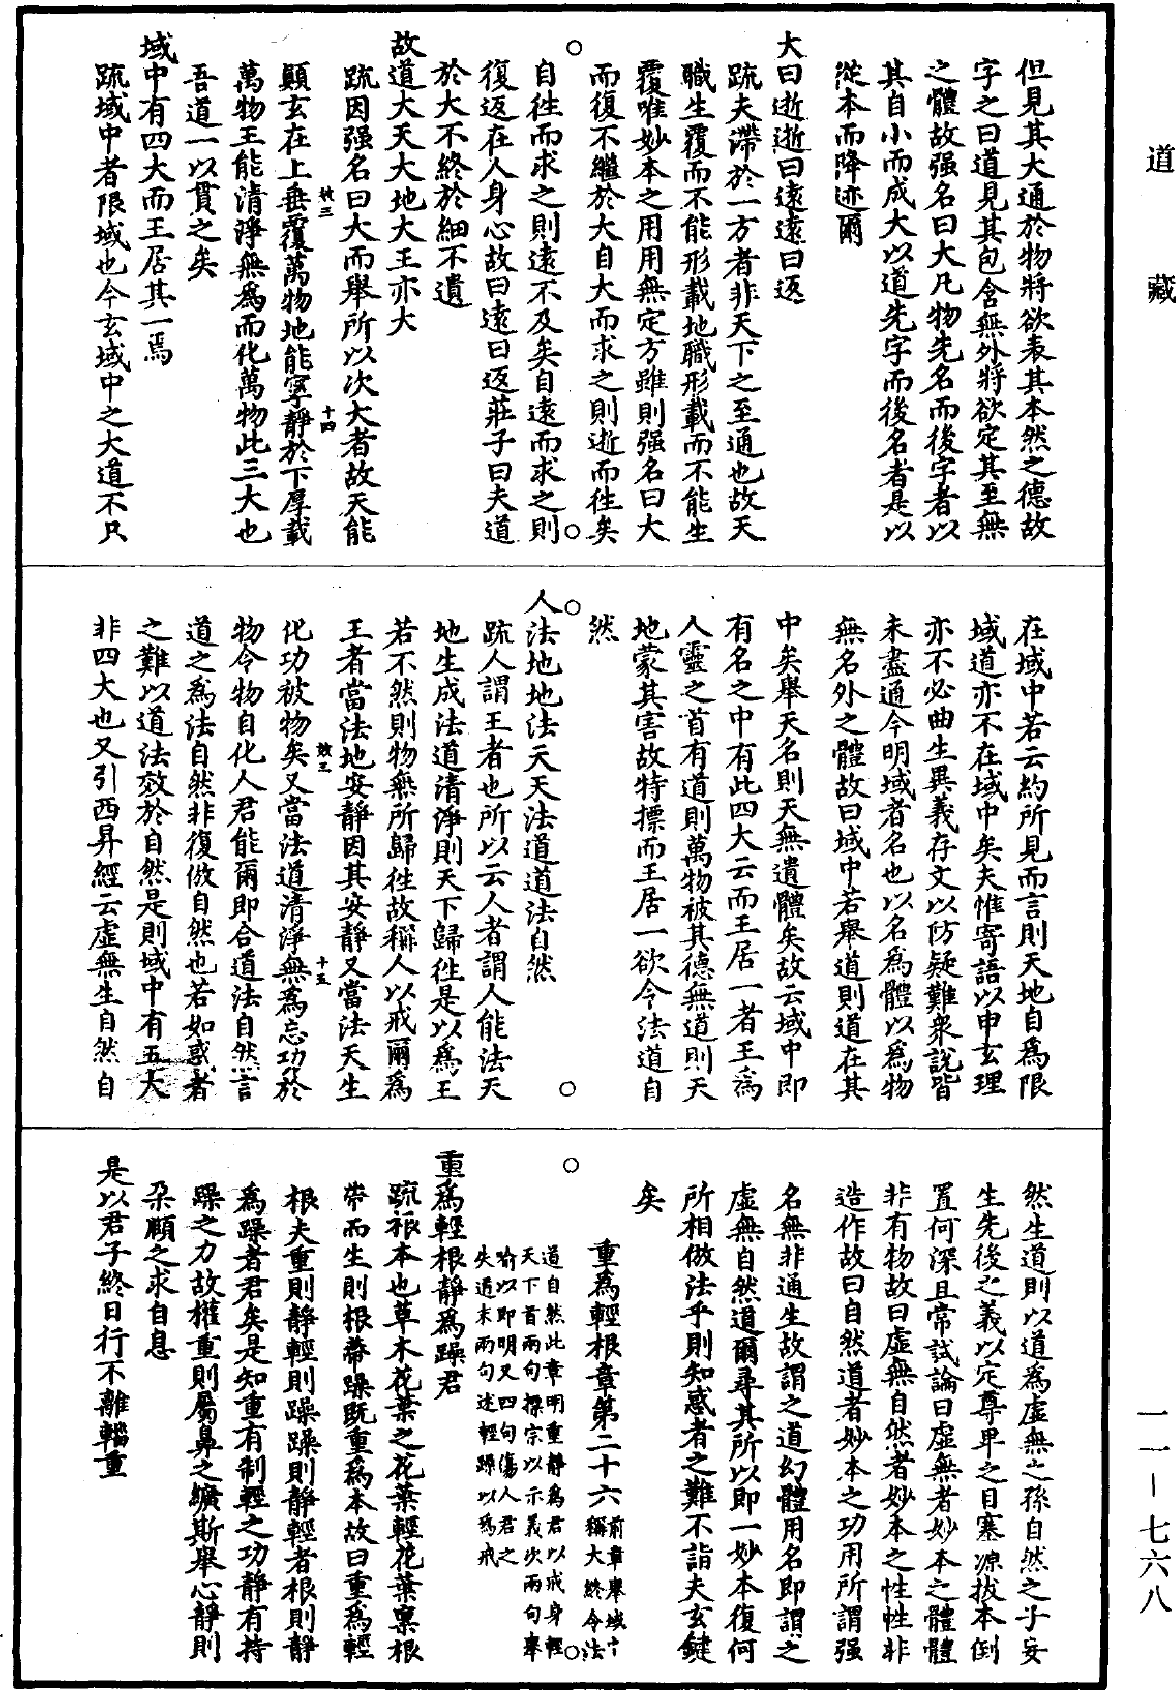 道藏
但見其大通於物將欲表其本然之德故
字之曰道見其包含無外將欲定其至無
之體故强名曰大凡物先名而後字者以
其自小而成大以道先字而後名者是以
從本而降迹爾
大曰逝逝曰遠遠曰返
疏夫滯於一方者非天下之至通也故天
職生覆而不能形載地職形載而不能生
覆唯妙本之用用無定方雖則强名曰大
而復不繼於大自大而求之則逝而往矣
自往而求之則遠不及矣自遠而求之則
復返在人身心故曰遠曰返莊子曰夫道
於大不終於細不遺
故道大天大地大王亦大
疏因强名曰大而舉所以次大者故天能
顛玄在上垂覆萬物地能寧靜於下厚載
萬物王能清淨無爲而化萬物此三大也
吾道一以貫之矣
域中有四大而王居其一焉
疏域中者限域也今玄域中之大道不只
在域中若云約所見而言則天地自爲限
域道亦不在域中矣夫惟寄語以申玄理
亦不必曲生異義存文以防疑難衆說皆
未盡通今明域者名也以名爲體以爲物
無名外之體故曰域中若舉道則道在其
中矣舉天名則天無遺體矣故云域中即
有名之中有此四大云而王居一者王爲
人靈之首有道則萬物被其德無道則天
地蒙其害故特摽而王居一欲令法道自
然
人法地地法天天法道道法自然
疏人謂王者也所以云人者謂人能法天
地生成法道清淨則天下歸往是以爲王
若不然則物無所歸往故稱人以戒爾爲
王者當法地安靜因其安靜又當法天生
化功被物矣又當法道清淨無爲忘功於
物令物自化人君能爾即合道法自然言
道之爲法自然非復倣自然也若如惑者
之難以道法效於自然是則域中有五大
非四大也又引西昇經云虛無生自然自
然生道則以道爲虛無之孫自然之子妄
生先後之義以定尊卑之目塞源拔本倒
置何深且常試論曰虛無者妙本之體體
非有物故曰虛無自然者妙本之性性非
造作故曰自然道者妙本之功用所謂强
名無非通生故謂之道幻體用名即謂之
虛無自然道爾尋其所以即一妙本復何
所相倣法乎則知惑者之難不詣夫玄鍵
矣
重爲輕根章第二十六前章舉域中稱大終令法
道自然此章明重靜爲君以戒身輕
天下首兩句摽宗以示義次兩句舉
喻以即明又四句傷人君之
失道末兩句述輕躁以爲戒
重爲輕根靜爲躁君
疏根本也草木花葉之花葉輕花葉稟根
蔕而生則根蔕躁既重爲本故曰重爲輕
根夫重則靜輕則躁躁則靜輕者根則靜
爲躁者君矣是知重有制輕之功靜有持
躁之力故權重則屬鼻之纊斯舉心靜則
朵頤之求自息
是以君子終日行不離輜重
一一－七六八